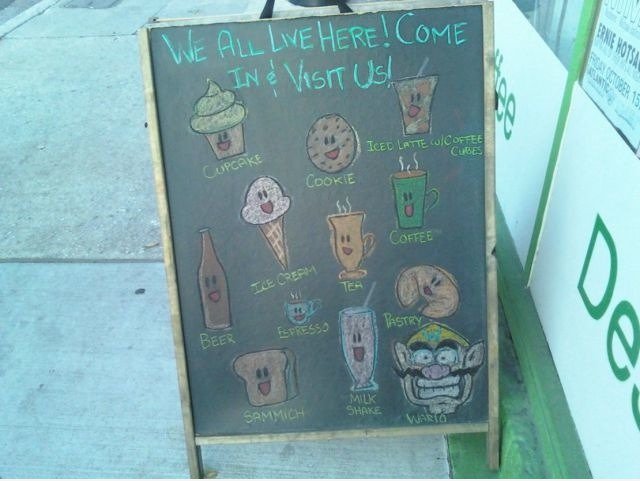 WE ALL LIVE HERE! COME
IN & VISIT US!
CUPCAKE
COOKIE
ICED LATTE W/COFFEE
CUBES
ICE CREAM
TEA
COFFEE
BEER
ESPRESSO
PASTRY
SAMMICH
MILK
SHAKE
WARIO
ERNIE HOTSA
FRIDAY OCTOBER 15
ATLANTIC